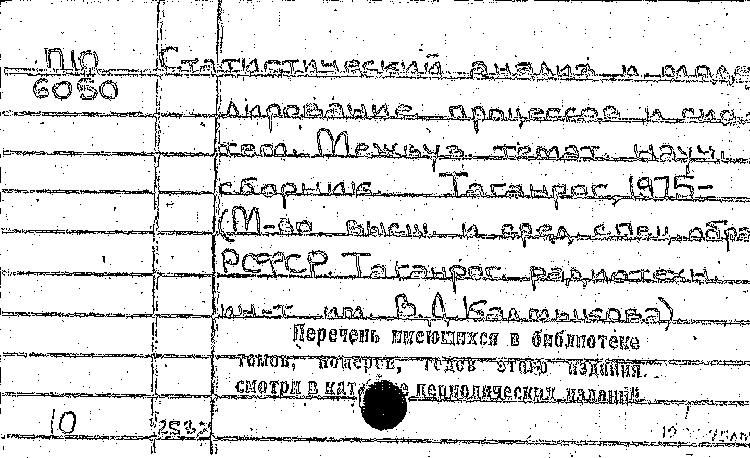 П10 Статистический анализ и моде-
6050
лирование процессов и сис-
тем. Межвуз. темат. науч.
сборник. Таганрог, 1975-
(М-во высш. и сред. спец. обра
РСФСР. Таганрог. радиотехн.
ин-т им. В.Д. Калмыкова)
Перечень имеющихся в библиотеке
томов, номеров, годов этого издания
смотри в каталоге периодических изданий
10